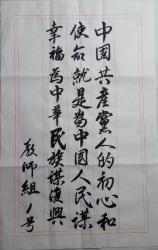 中國共產黨人的初心和
使命就是為中國人民謀
幸福為中華民族謀復興
教師組1号